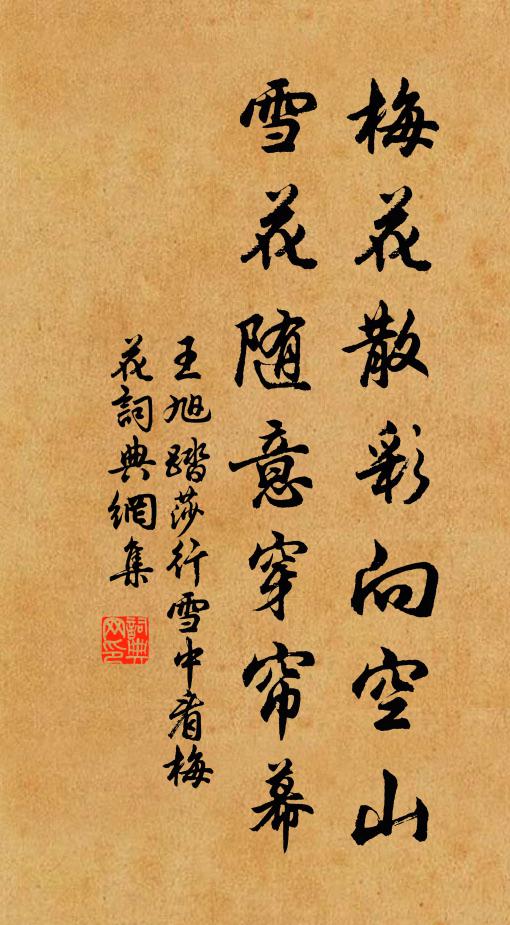 梅花散彩向空山
雪花随意穿帘幕
王旭踏莎行雪中看梅
花詞典網集
詞典网印